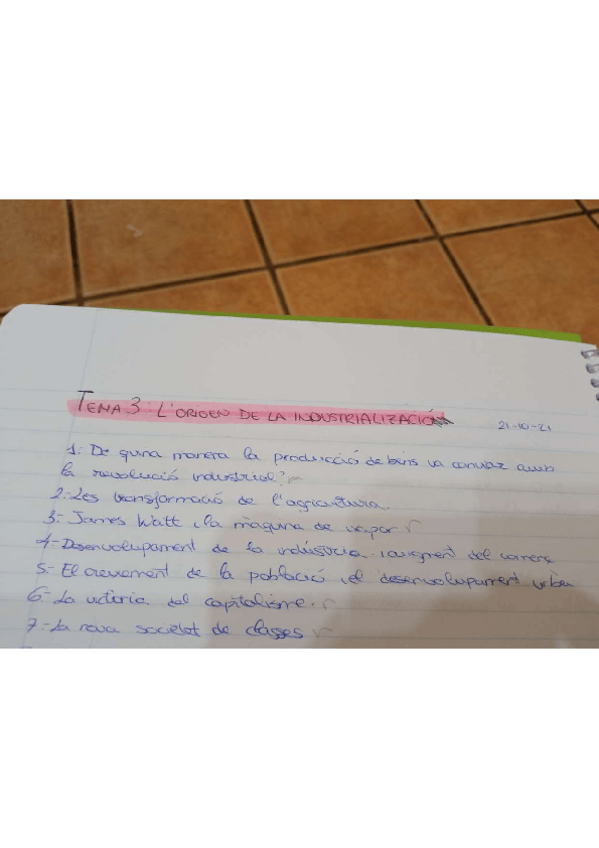 TEMA 3: L'ORIGEN DE LA INDUSTRIALIZACIÓ
21-10-21
1: De quina manera la producció de bens va canviar amb
la revolució industrial?
2: Les transformació de l'agricultura.
3:- James Watt i la màquina de vapor
4- Desenvolupament de la indústria i augment del comerç
5:- El creixement de la població i el desenvolupament urbà
6:- La victòria del capitalisme.
7:- La nova societat de classes